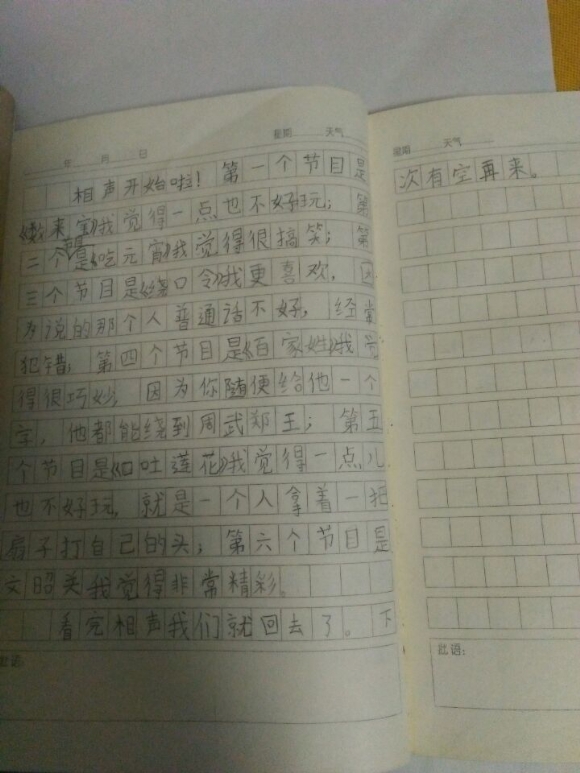 年 月 日 星期 天气
相声开始啦！第一个节目是
《数来宝》我觉得一点也不好玩；第
二个节目是《吃元宵》我觉得很搞笑；第
三个节目是《绕口令》我更喜欢，因
为说的那个人普通话不好，经常
犯错；第四个节目是《百家姓》我觉
得很巧妙，因为你随便给他一个
字，他都能绕到周武郑王；第五
个节目是《口吐莲花》我觉得一点儿
也不好玩，就是一个人拿着一把
扇子打自己的头；第六个节目是
文昭关我觉得非常精彩。
看完相声我们就回去了。下
批语：
星期 天气
次有空再来。
批语：